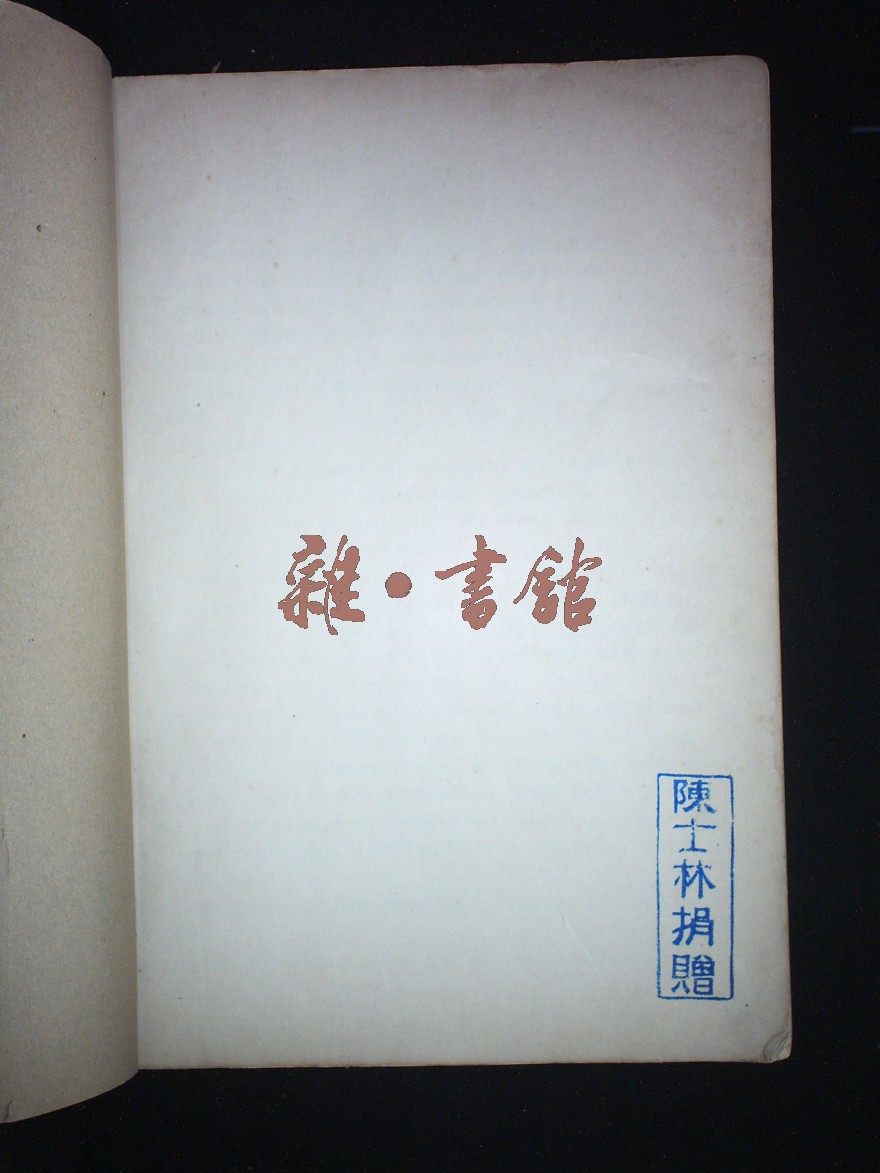 雜·書館
陳士林捐贈